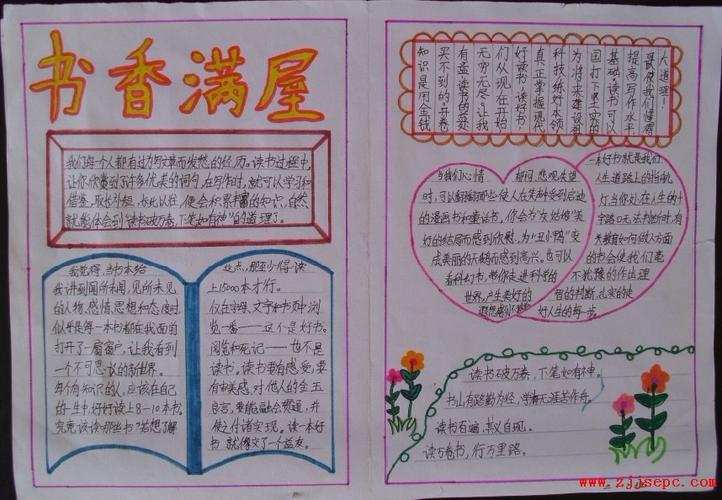 书香满屋
我们每个人都有过为写文章而发愁的经历。读书过程中,
让你欣赏到了许多优美的词句,在写作时,就可以学习和
借鉴。取长补短,长此以往,便会积累丰富的知识,自然
就能体会到"读书破万卷,下笔如有神"的道理了。
我觉得,当书本给
我讲到闻所未闻,见所未见
的人物、感情、思想和态度时,
似乎是每一本书都在我面前
打开了一扇窗户,让我看到
一个不可思议的新世界。
每个有知识的人,应该在自己
的一生中,好好读上8-10本书,
究竟该读哪些书?若想了解
这点,那至少得读
上15000本才行。
仅在字母、文字和书页中浏
览一番——这不是好书。
阅览和死记——也不是
读书。读书要有感受,要
有审美感,对他人的金玉
良言,要能融会贯通,并
使之付诸实现。读一本好
书就像交了一个益友。
大道理!
哥使我们懂得
提高写作水平
基础。读书可以
国打下坚实的
为将来建设祖
科技,练好本领
真正掌握现代
好读书,读好书,
们从现在开始
无穷无尽。让我
有益,读书的益处
买不到的。开卷
知识是用金钱
当我们心情
郁闷、悲观失望
时,可以翻翻那些使人在笑声中受到启迪
的漫画书和童话书,你会为"灰姑娘"美
好的结局而感到欣慰,为"丑小鸭"变
成美丽的天鹅而感到高兴。也可以
看科幻书,带你走进科学的
世界,产生美好的
一本好书就是我们
人生道路上的指航
灯。当你处在人生的十
字路口无法判断时,有
关教育如何做人方面
的书会使我们毫
不犹豫的作出理
智的判断,扎实的走
好人生的每一步。
读书破万卷,下笔如有神。
书山有路勤为径,学海无涯苦作舟。
读书百遍,其义自现。
读万卷书,行万里路。
www.zjjsepc.com